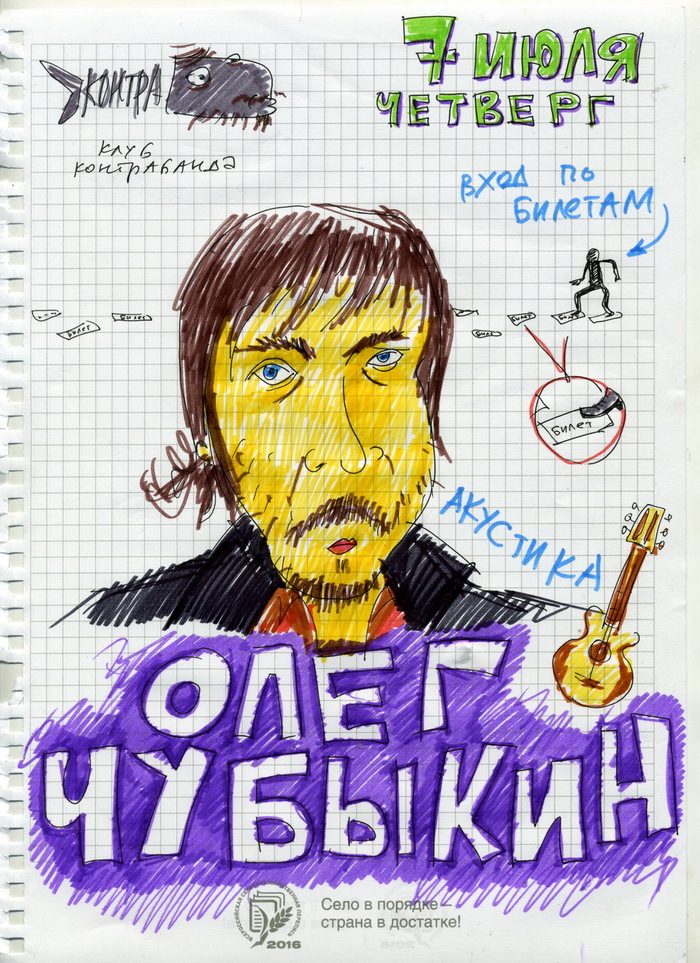 КОНТРА
клуб
контрабанда
7 ИЮЛЯ
ЧЕТВЕРГ
ВХОД ПО
БИЛЕТАМ
билет
билет
билет
билет
билет
билет
АКУСТИКА
ОЛЕГ
ЧУБЫКИН
ВСЕРОССИЙСКАЯ СЕЛЬСКОХОЗЯЙСТВЕННАЯ ПЕРЕПИСЬ
2016
Село в порядке –
страна в достатке!